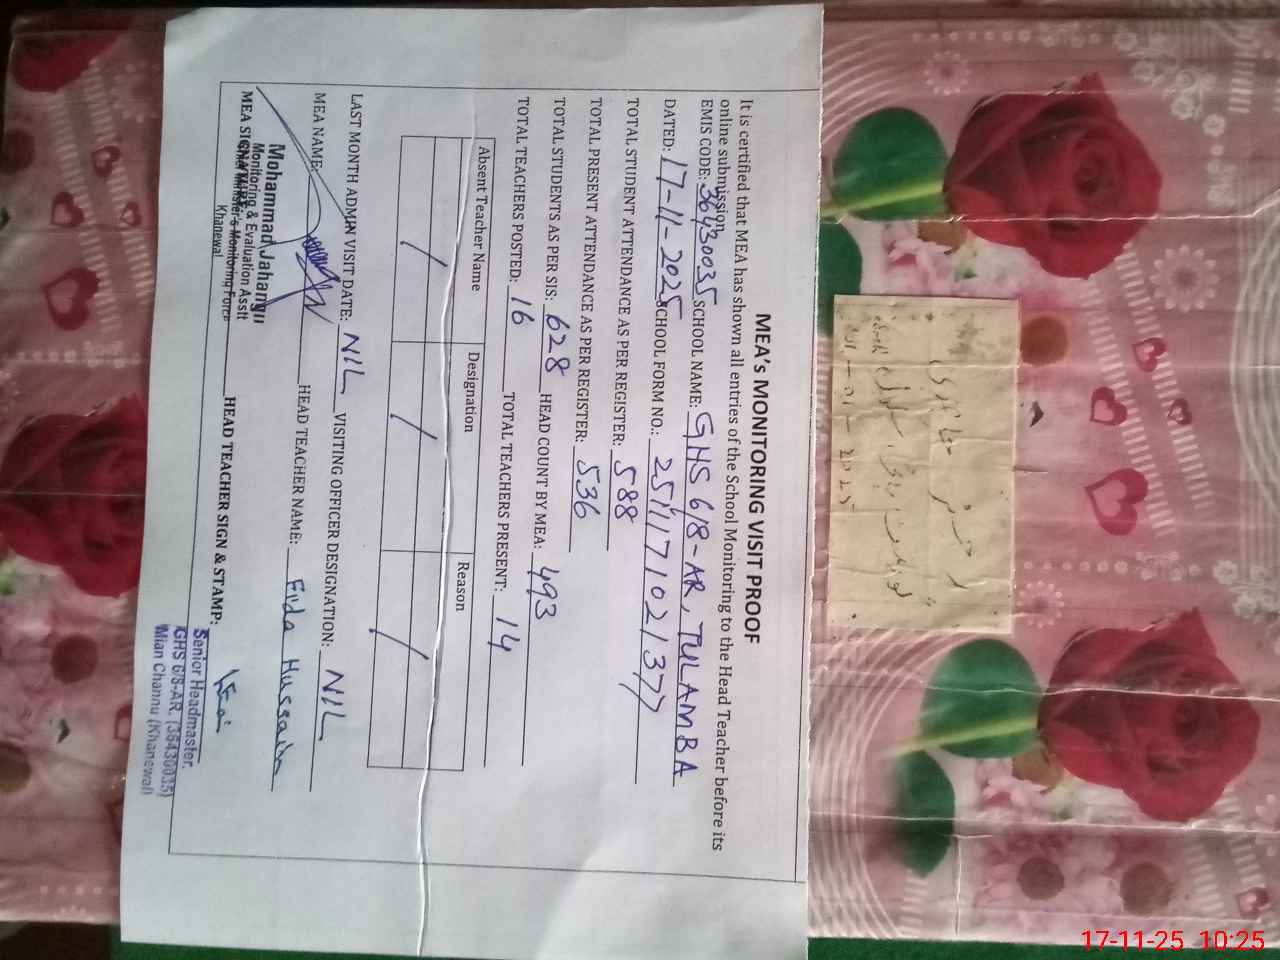 MEA's MONITORING VISIT PROOF
It is certified that MEA has shown all entries of the School Monitoring to the Head Teacher before its
online submission
EMIS CODE: 36430035 SCHOOL NAME: GHS 6/8-AR, TULAMBA
DATED: 17-11-2025 SCHOOL FORM NO.:
TOTAL STUDENT ATTENDANCE AS PER REGISTER: 588
TOTAL PRESENT ATTENDANCE AS PER REGISTER: 536
TOTAL STUDENTS AS PER SIS: 628 HEAD COUNT BY MEA: 493
TOTAL TEACHERS POSTED: 16 TOTAL TEACHERS PRESENT: 14
Absent Teacher Name Designation Reason
/ / /
LAST MONTH ADMIN VISIT DATE: NIL VISITING OFFICER DESIGNATION: NIL
MEA NAME: HEAD TEACHER NAME: Fida Hussain
Mohammad Jahangir
Monitoring & Evaluation Asstt
Chief Minister's Monitoring Force
Khanewal
MEA SIGNATURE HEAD TEACHER SIGN & STAMP:
Senior Headmaster,
GHS 6/8-AR. (36430035)
Mian Channu (Khanewal)
17-11-25 10:25